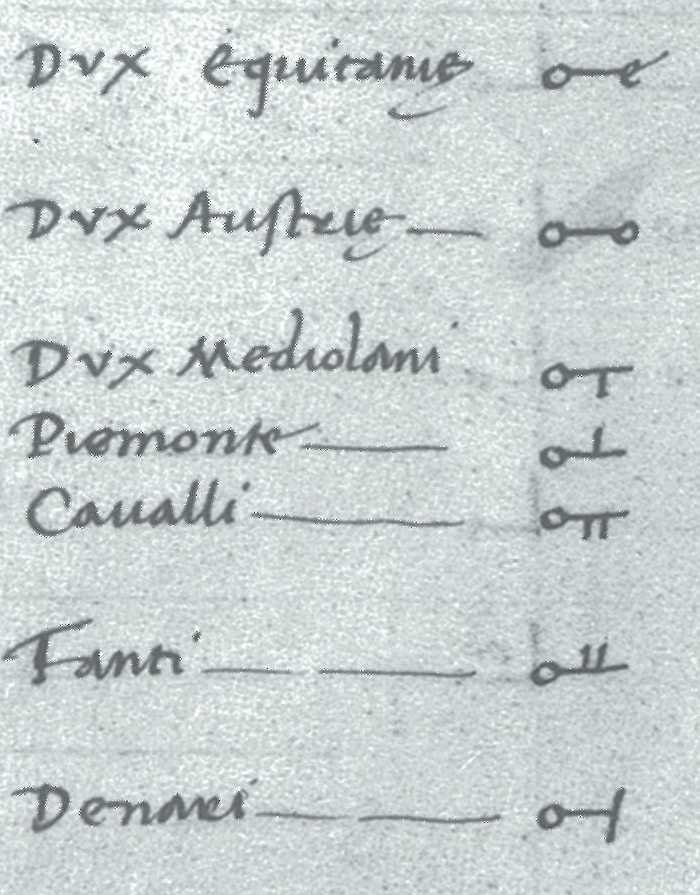 Dvx equitanie
Dvx Austrie
Dvx Mediolani
Piemonte
Caualli
Fanti
Denari